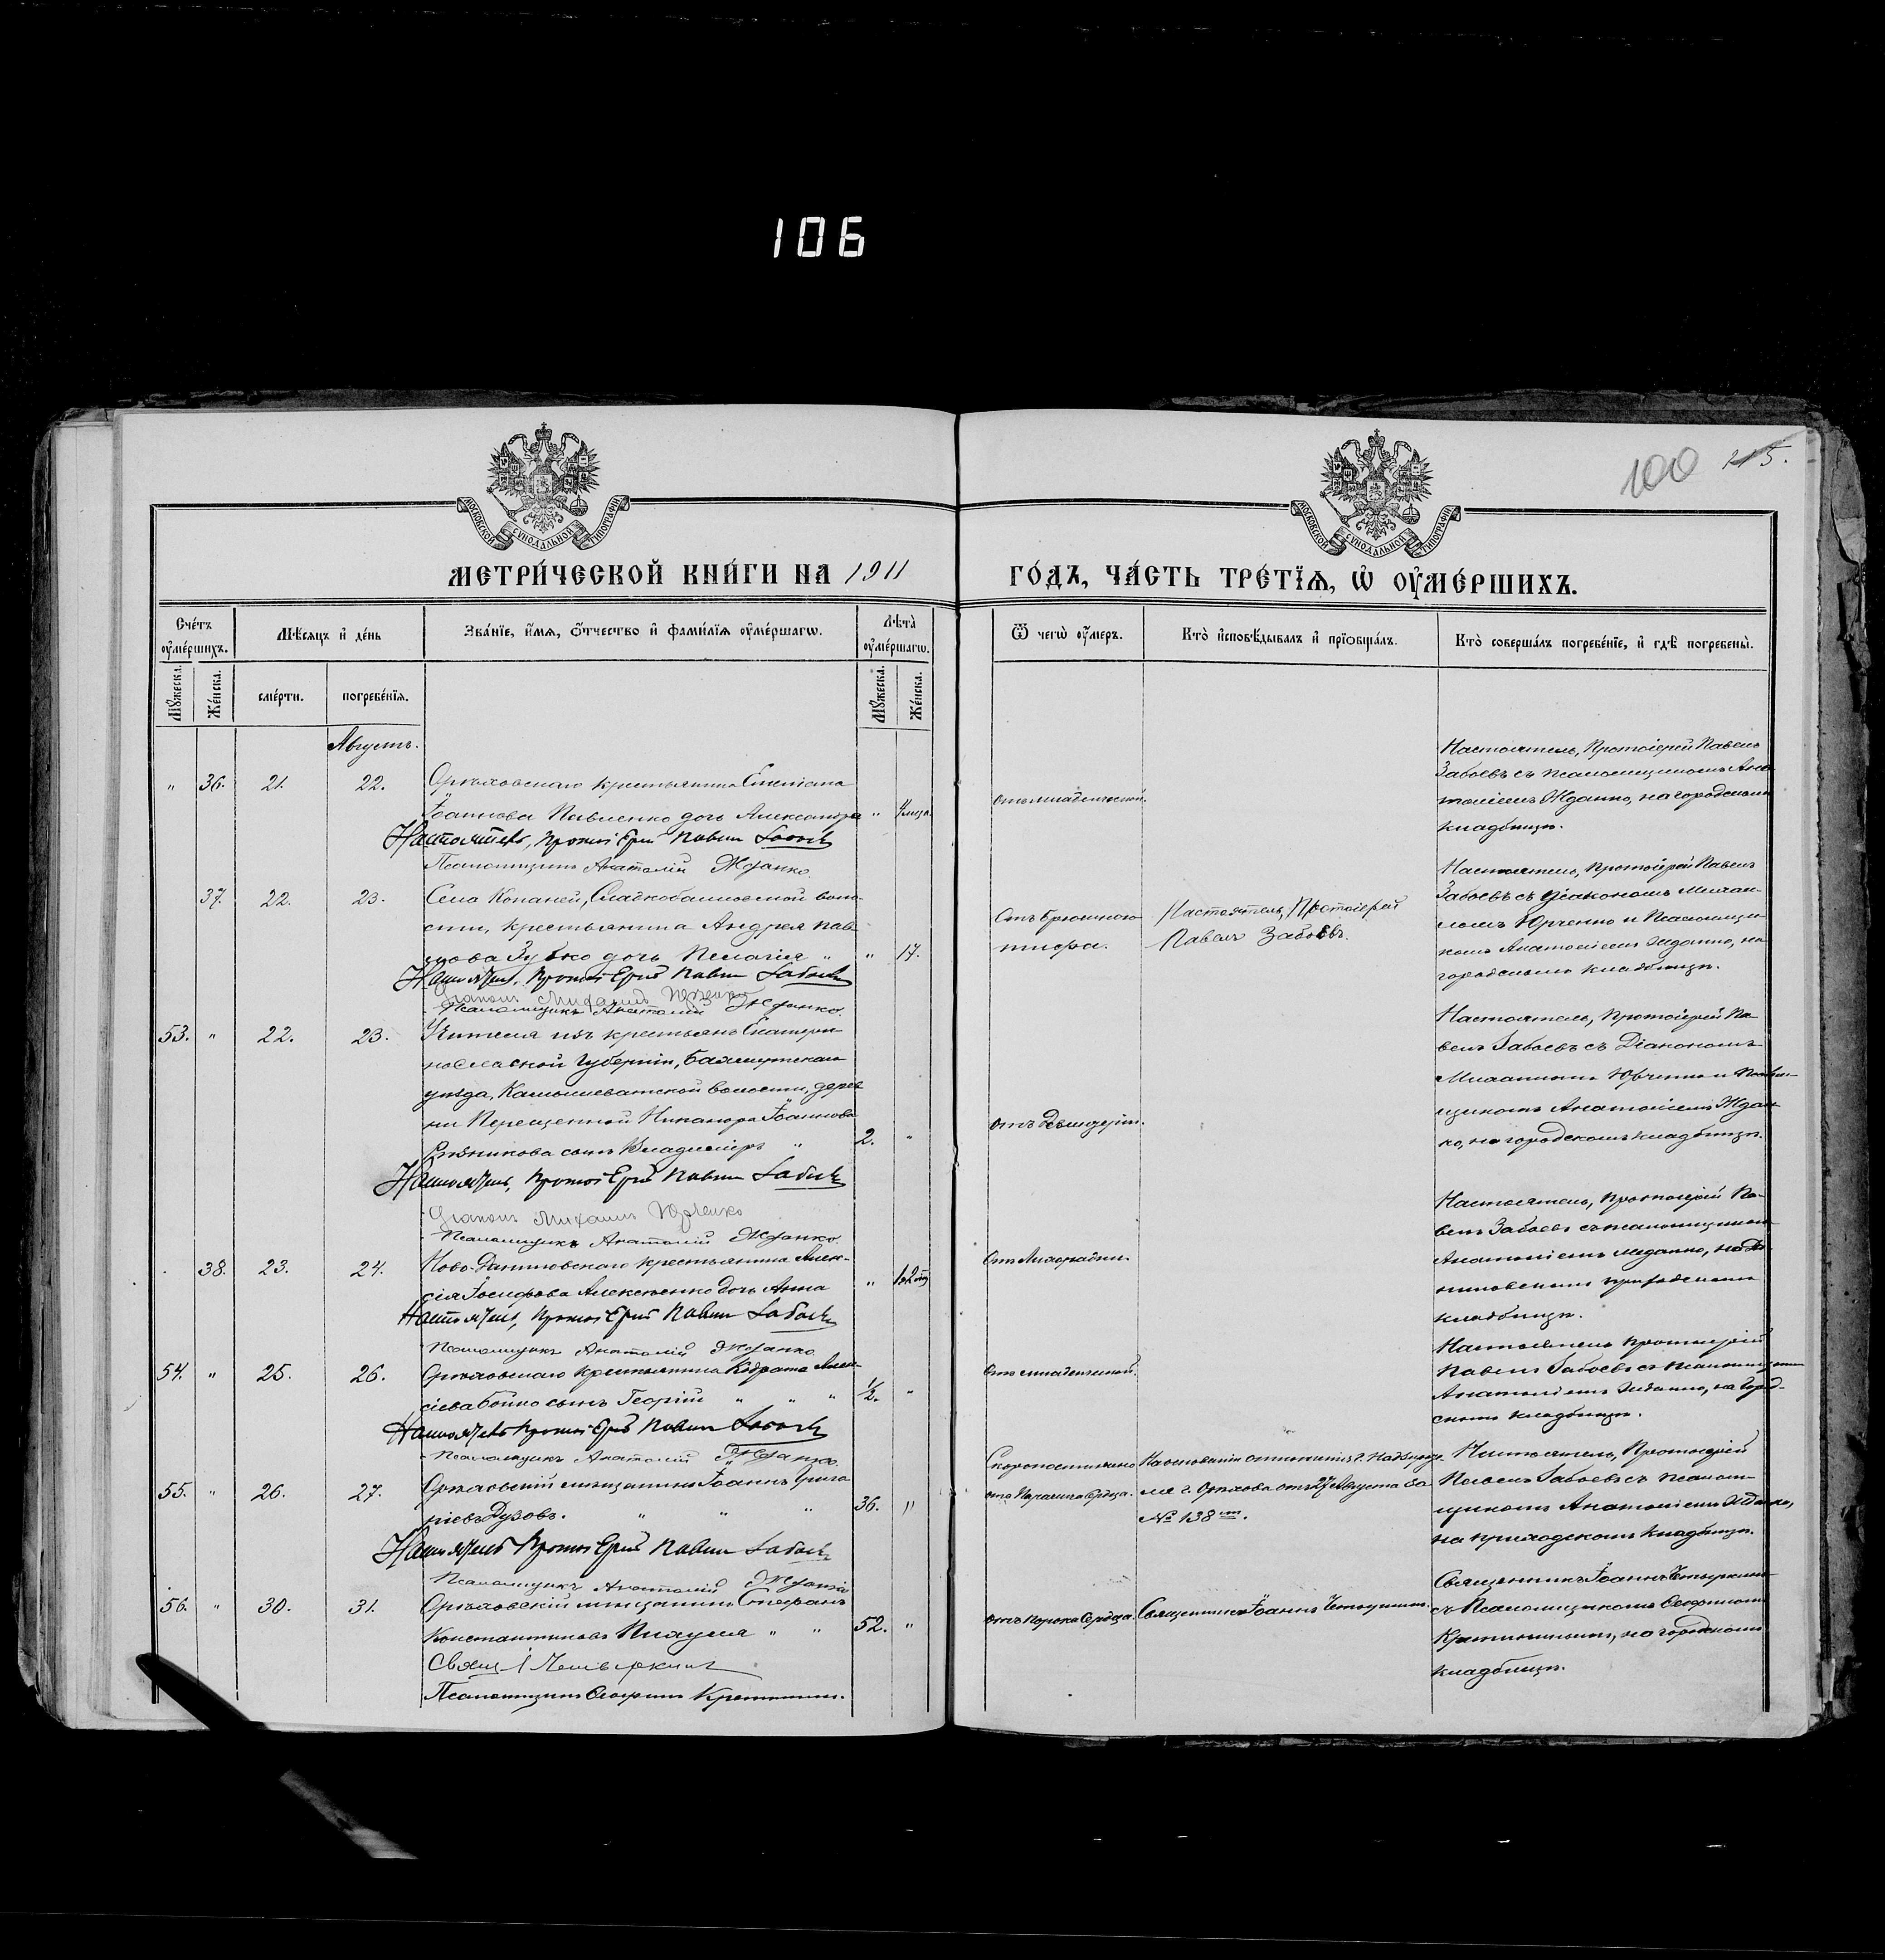 106
100 215.
МОСКОВСКОЙ СУНОДАЛЬНОЙ ТИПОГРАФІИ
МОСКОВСКОЙ СУНОДАЛЬНОЙ ТИПОГРАФІИ
МЕТРИ́ЧЕСКОЙ КНИ́ГИ НА 1911 ГО́ДЪ, ЧА́СТЬ ТРЕ́ТЇѦ, Ѡ҆ ОУ҆МЕ́РШИХЪ.
Сче́тъ оу҆ме́ршихъ.
Мѣ́сѧцъ и҆ де́нь
Зва́нїе, и҆́мѧ, ѻ҆́тчество и҆ фами́лїѧ оу҆ме́ршагѡ.
Лѣ́та̀ оу҆ме́ршагѡ.
Ѿ чегѡ̀ оу҆́меръ.
Кто̀ и҆сповѣ́дывалъ и҆ прїѡбща́лъ.
Кто̀ соверша́лъ погребе́нїе, и҆ гдѣ̀ погребены̀.
Мꙋ́жеска. Же́нска. сме́рти. погребе́нїѧ. Мꙋ́жеска. Же́нска.
Августъ.
" 36. 21. 22. Орѣховскаго крестьянина
Іоаннова Павленко дочь Александра "
Настоятель, Протоіерей Павелъ Забоевъ
Псаломщикъ Анатолій Жданко.
отъ младенческой.
Настоятель, Протоіерей Павелъ
Забоевъ съ псаломщикомъ Ана-
толіемъ Жданко, на городскомъ
кладбищѣ.
37. 22. 23. Села Копаней, воло-
сти, крестьянина Андрея Пав-
лова Зубко дочь Пелагія " " 17.
Настоятель, Протоіерей Павелъ Забоевъ
Діаконъ Михаилъ Юрченко
Псаломщикъ Анатолій Жданко.
Отъ брюшного
тифа.
Настоятель, Протоіерей
Павелъ Забоевъ.
Настоятель, Протоіерей Павелъ
Забоевъ съ Діакономъ Михаи-
ломъ Юрченко и Псаломщи-
комъ Анатоліемъ Жданко, на
городскомъ кладбищѣ.
53. " 22. 23. Учителя изъ крестьянъ Екатери-
нославской Губерніи, Бахмутскаго
уѣзда, Камышеватской волости, дерев-
ни Никанора Іоаннова
сынъ Владиміръ " 2. "
Настоятель, Протоіерей Павелъ Забоевъ
Діаконъ Михаилъ Юрченко
Псаломщикъ Анатолій Жданко.
отъ дезинтеріи.
Настоятель, Протоіерей Па-
велъ Забоевъ съ Діакономъ
Михаиломъ Юрченко и Псалом-
щикомъ Анатоліемъ Ждан-
ко, на городскомъ кладбищѣ.
38. 23. 24. Ново-Даниловскаго крестьянина Алек-
сія Іосифова Алексѣенко дочь Анна "
Настоятель, Протоіерей Павелъ Забоевъ
Псаломщикъ Анатолій Жданко
Отъ Лихорадки.
Настоятель, Протоіерей Па-
велъ Забоевъ съ псаломщикомъ
Анатоліемъ Жданко, на Да-
ниловскомъ приходскомъ
кладбищѣ.
54. " 25. 26. Орѣховскаго крестьянина Кодрата Алек-
сіева Бойко сынъ Георгій " " " ½. "
Настоятель Протоіерей Павелъ Забоевъ
Псаломщикъ Анатолій Жданко.
Отъ младенческой.
Настоятель Протоіерей
Павелъ Забоевъ съ Псаломщикомъ
Анатоліемъ Жданко, на Город-
скомъ кладбищѣ.
55. " 26. 27. Орѣховскій мѣщанинъ Іоаннъ Григо-
ріевъ Дузовъ. " " " 36. "
Настоятель Протоіерей Павелъ Забоевъ
Псаломщикъ Анатолій Жданко
Скоропостижно
отъ Паралича сердца.
На основаніи отношенія Г. Надзирате-
ля г. Орѣхова отъ 27 Августа за
№ 138
Настоятель, Протоіерей
Павелъ Забоевъ съ Псалом-
щикомъ Анатоліемъ Жданко,
на приходскомъ кладбищѣ.
56. " 30. 31. Орѣховскій мѣщанинъ Стефанъ
Константиновъ " " 52. "
Свящ. І. Четыркинъ
Псаломщикъ
отъ порока Сердца.
Священникъ Іоаннъ Четыркинъ.
Священникъ Іоаннъ Четыркинъ
съ Псаломщикомъ
на городскомъ
кладбищѣ.